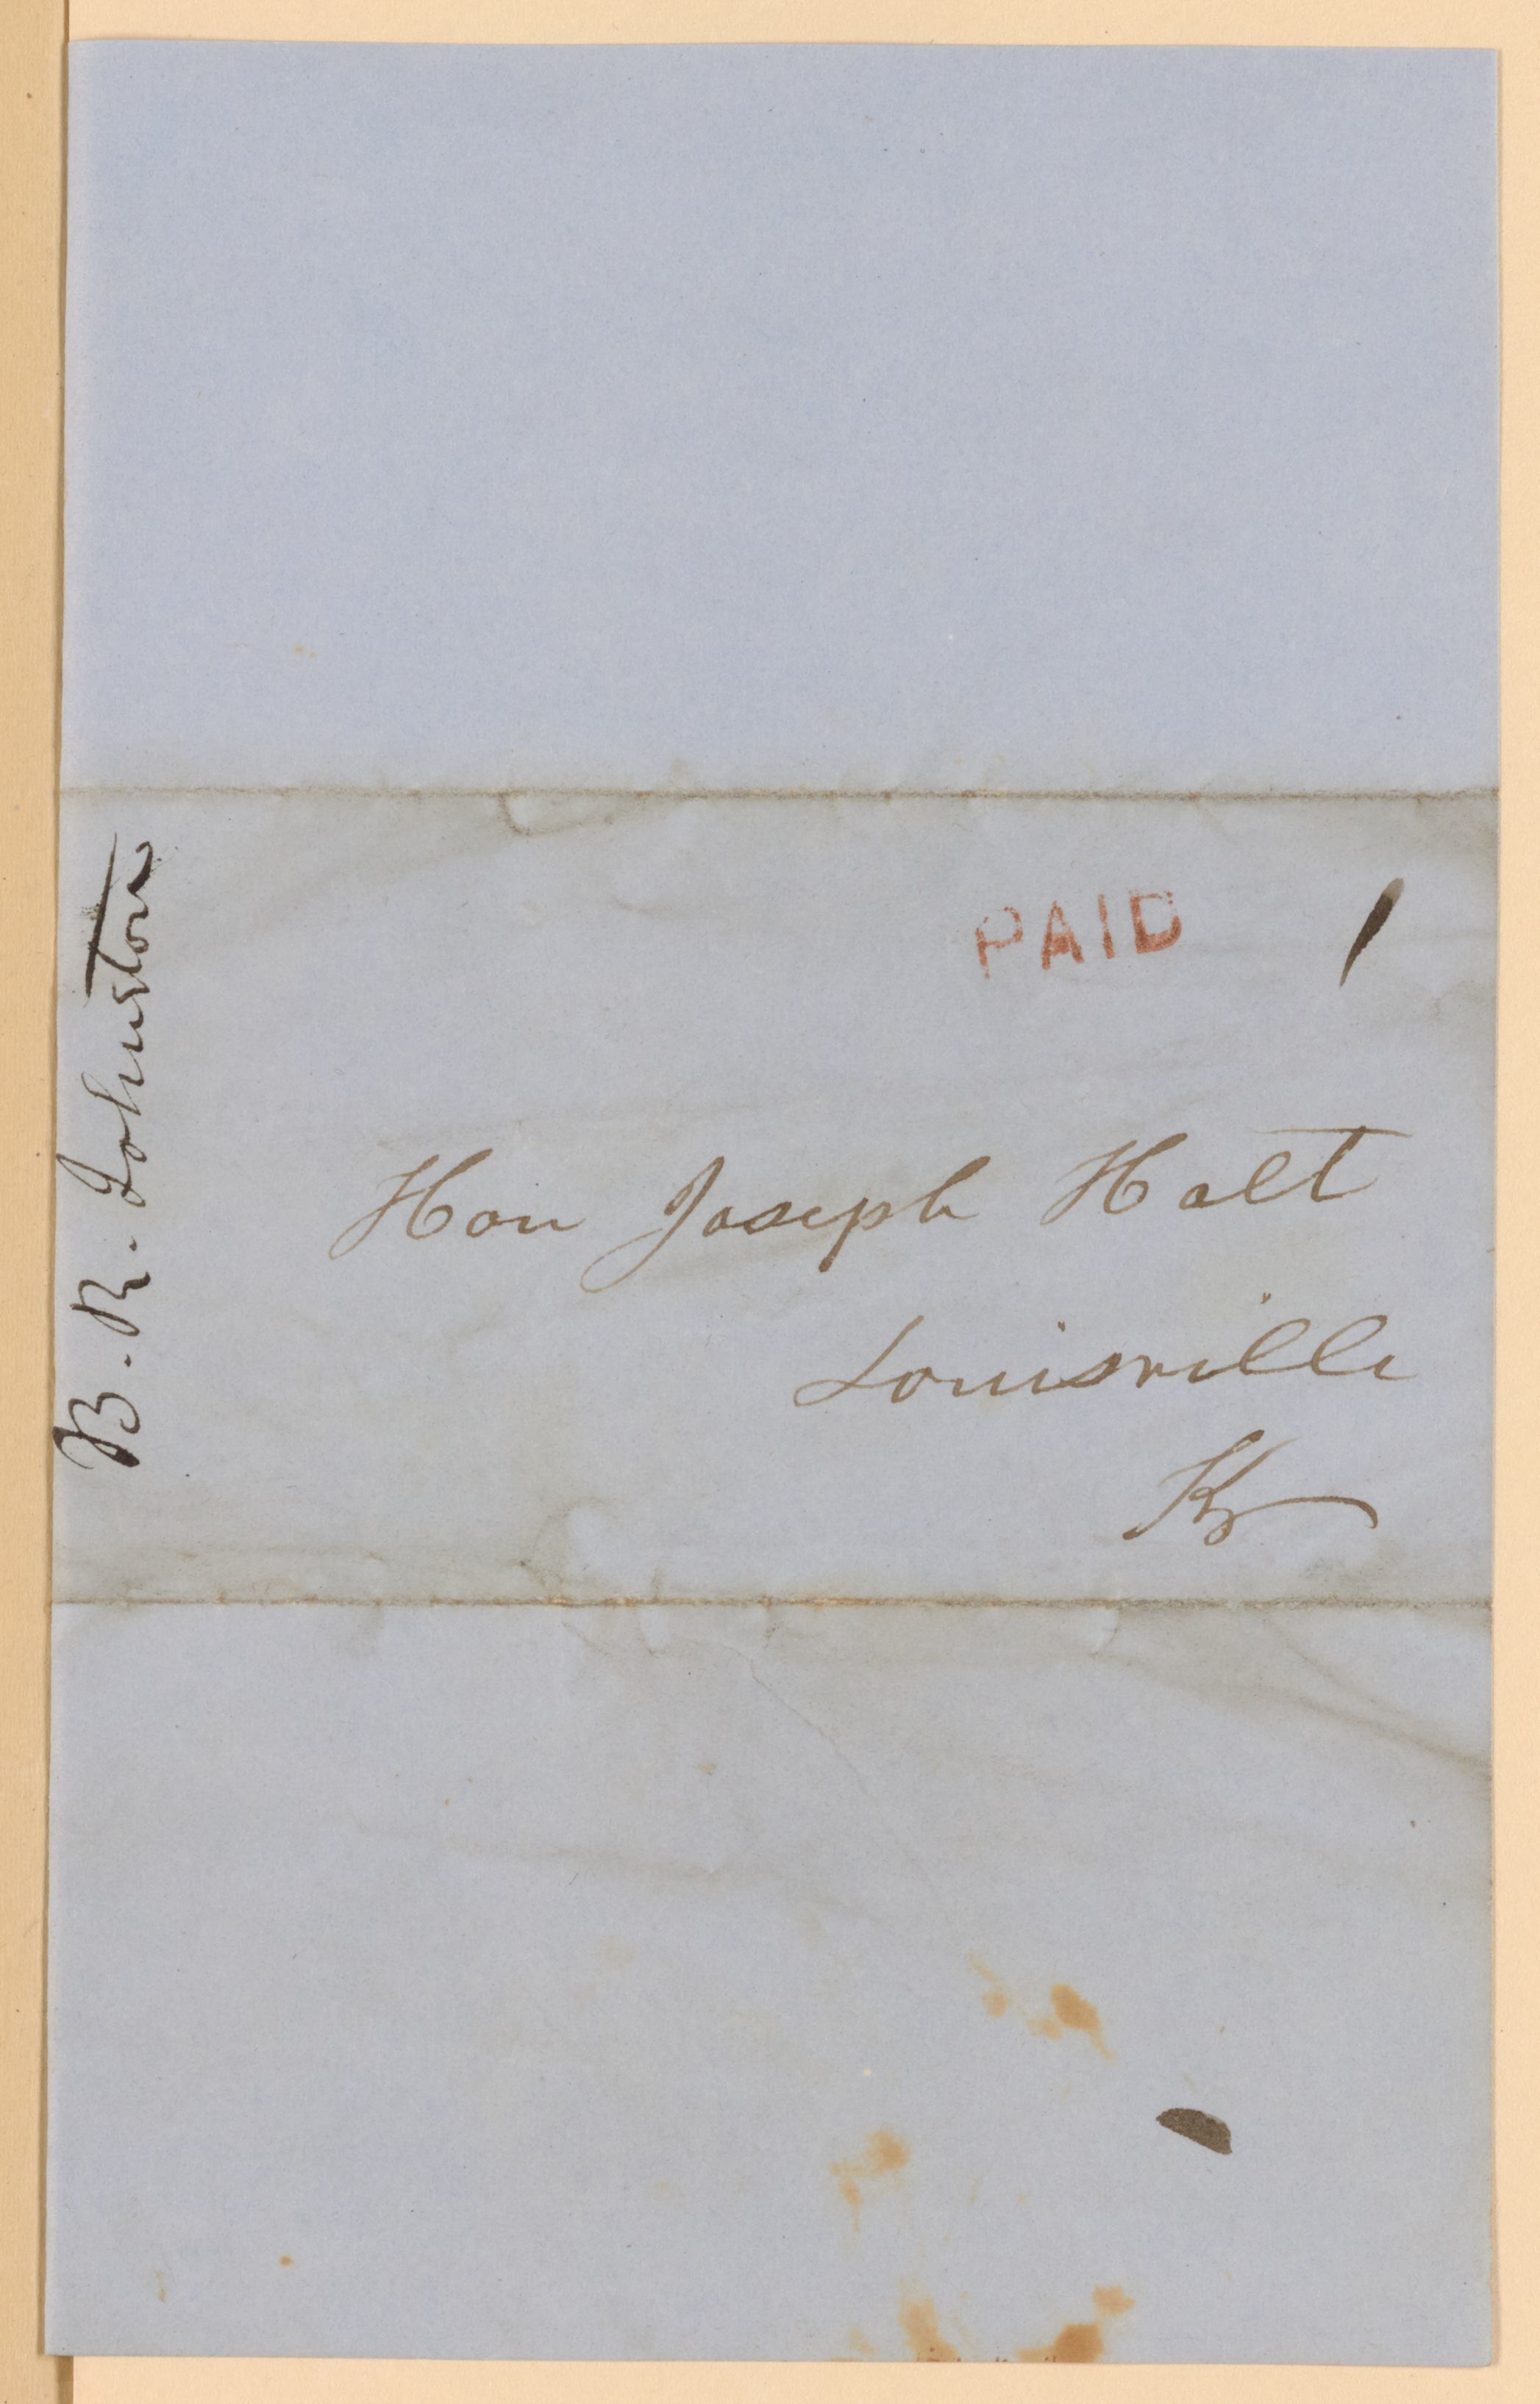 B. R. Johnston
PAID
Hon Joseph Holt
Louisville
Ky